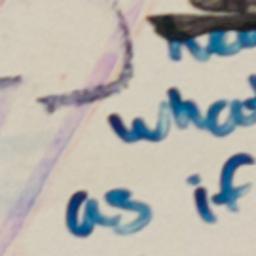 what
as if